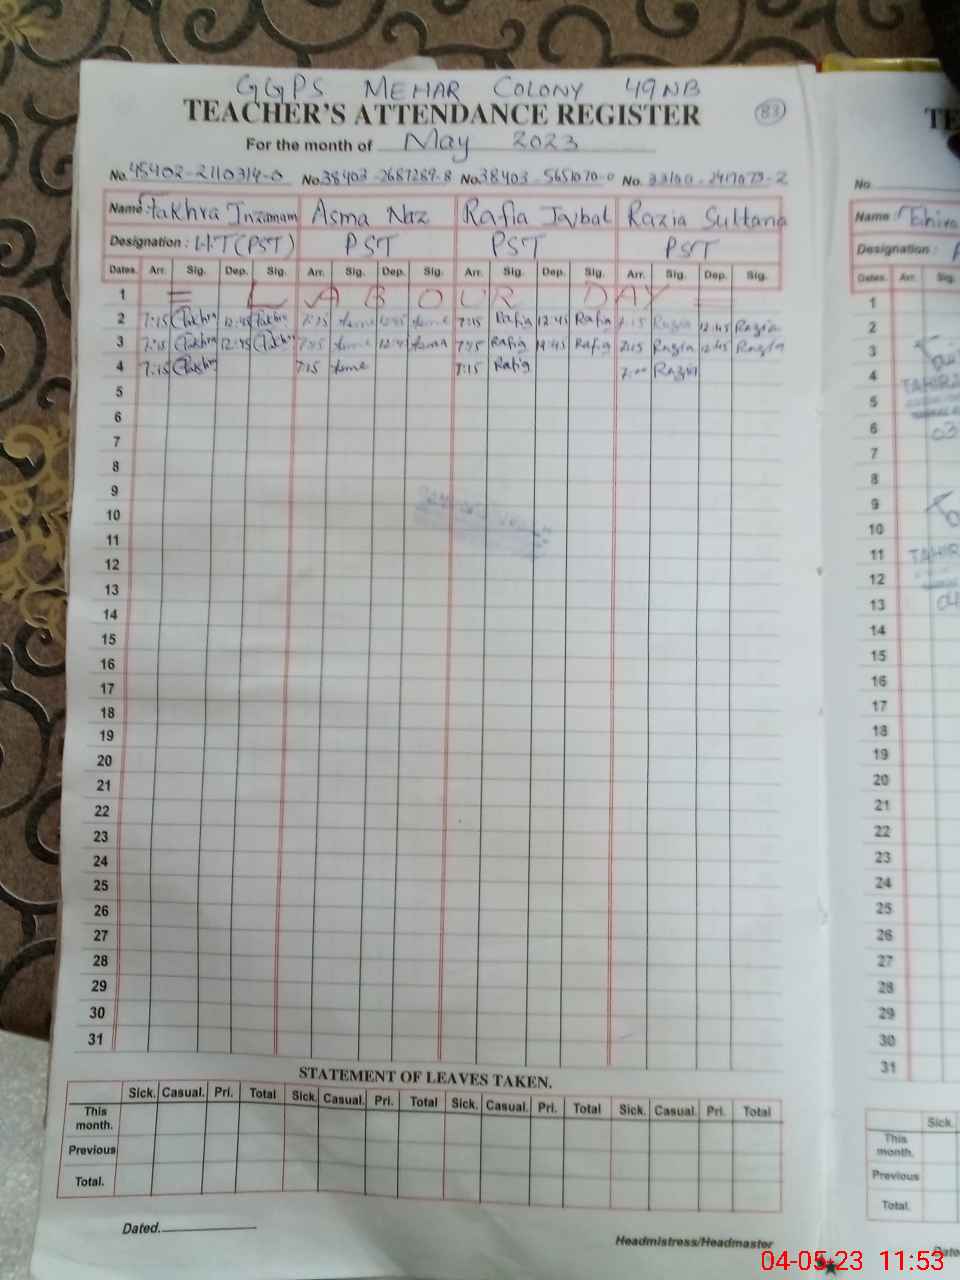 GGPS MEHAR COLONY 49NB
TEACHER'S ATTENDANCE REGISTER
83
For the month of May 2023
No. 45402-2110314-0 No. 38403-2687289-8 No. 38403-5651070-0 No.
Name Fakhra Inzamam Asma Naz Rafia Iqbal Razia Sultana
Designation : H.T (PST) PST PST PST
Dates. Arr. Sig. Dep. Sig. Arr. Sig. Dep. Sig. Arr. Sig. Dep. Sig. Arr. Sig. Dep. Sig.
1 = LABOUR DAY =
2 7:15 Fakhra 12:45 Fakhra 7:15 12:45 7:15 Rafia 12:45 Rafia 7:15 Razia 12:45 Razia
3 7:15 Fakhra 12:45 Fakhra 7:15 12:45 7:15 Rafia Rafia 7:15 Razia 12:45 Razia
4 7:15 Fakhra 7:15 7:15 Rafia 7:00 Razia
5
6
7
8
9
10
11
12
13
14
15
16
17
18
19
20
21
22
23
24
25
26
27
28
29
30
31
STATEMENT OF LEAVES TAKEN.
Sick. Casual. Pri. Total Sick. Casual. Pri. Total Sick. Casual. Pri. Total Sick. Casual. Pri. Total
This month.
Previous
Total.
Dated.
Headmistress/Headmaster
TE
No
Name : Tahira
Designation :
Dates. Arr. Sig.
1
2
3
4
TAHIRA
5
6
03
7
8
9
10
11 TAHIR
12
13 04
14
15
16
17
18
19
20
21
22
23
24
25
26
27
28
29
30
31
Sick.
This month.
Previous
Total.
Date
04-05-23 11:53